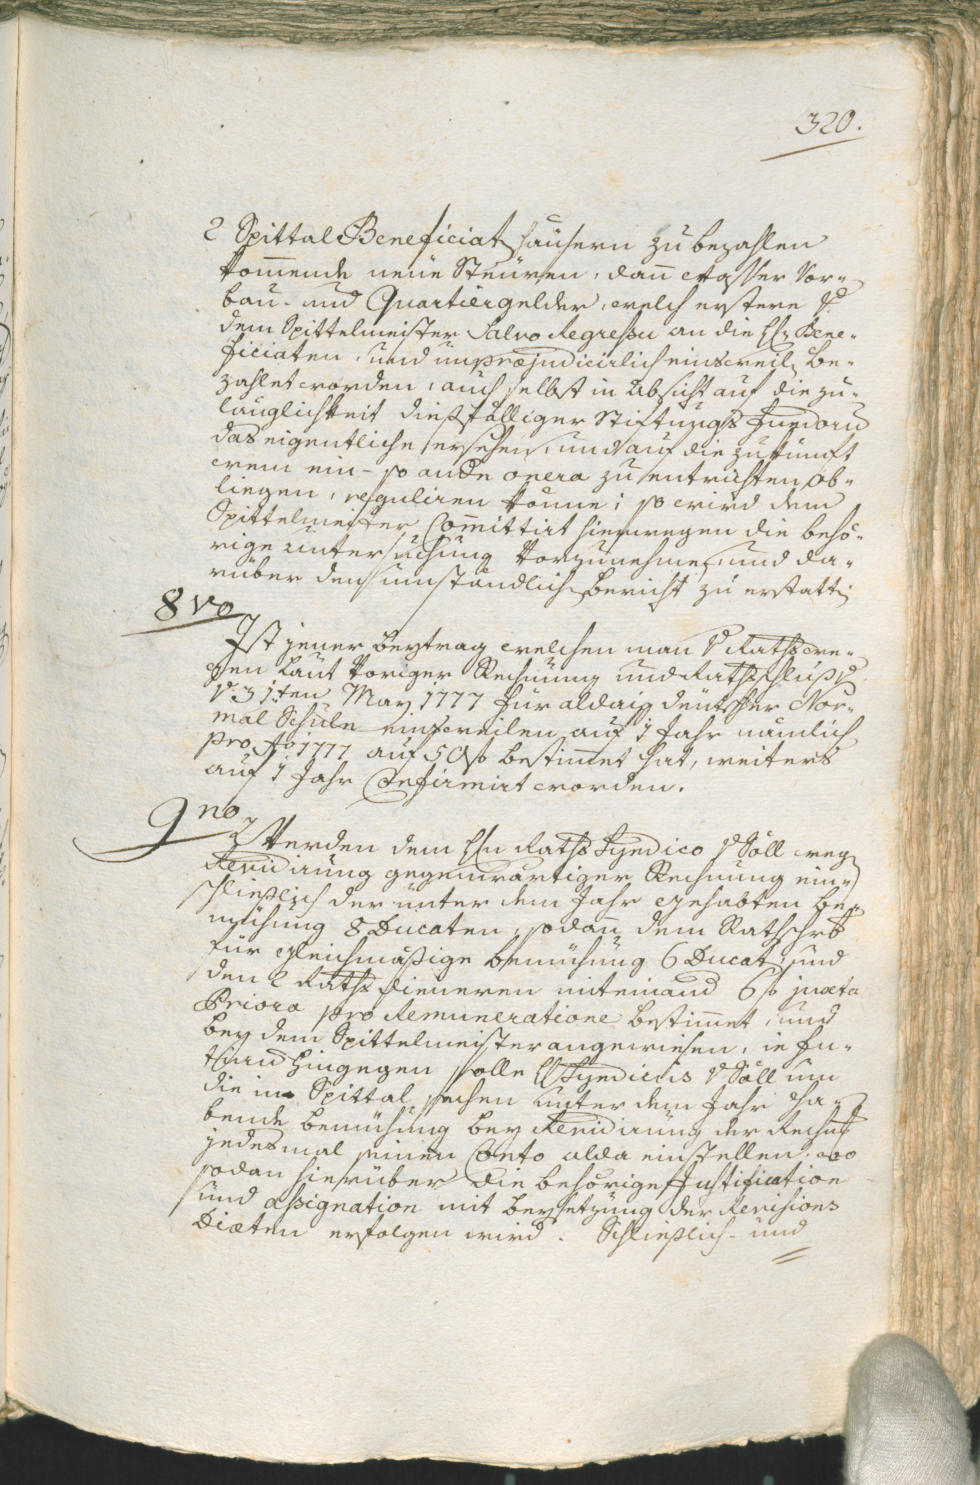 320.
2 Spittal Beneficiat häusern zu bezahlen
kom̄ende neüe Steüren, dan̄ Wasser Vor-
bau- und Quartiergelder, welch erstere v.
dem Spittelmeister Salvo Regressu an die H. Bene-
ficiaten, und unpræjudicirlich einsweil. be-
zahlet worden, auch selbst in Absicht auf die zu-
länglichkeit dießfälliger Stiftungs Fundorum
das eigentliche ersehen, und auf die zukunft
wem ein- so ande onera zu entrichten ob-
liegen, reguliren könne; so wird dem
Spittelmeister Com̄ittirt hierwegen die behö-
rige untersuchung vorzunehmen, und da-
rüber den umständlich. bericht zu erstatt.
8vo
Ist jener beytrag welchen man v Raths we-
gen Laut voriger Rechnung und Rathsschluß d.
v 31ten May 1777 für aldaig deütscher Nor-
mal Schule einsweilen auf 1 Jahr nämlich
pro Ao 1777 auf 50 f bestim̄et hat, weiters
auf 1 Jahr Confirmirt worden.
9no
Werden dem H Raths Syndico v Söll weg.
Revidirung gegenwärtiger Rechnung ein-
schließlich der unter dem Jahr gehabten be-
mühung 8 Ducaten, sodan̄ dem Rathschrb
für gleichmäßige bemühung 6 Ducat. und
den 2 Raths dieneren miteinand 6 f juxta
Priora pro Remuneratione bestim̄et, und
bey dem Spittelmeister angewiesen, in fu-
turum hingegen solle H Syndicus v Söll um
die im Spittal sachen unter dem Jahr ha-
bende bemühung bey Revidirung der Rechnung
jedesmal seinen Conto alda einstellen, wo
sodan hierüber die behörige Justification
und assignation mit beysetzung der Revisions
Diæten erfolgen wird. Schließlich- und